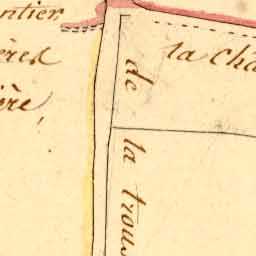 ntier
ères
ère,
la cha
de la trous